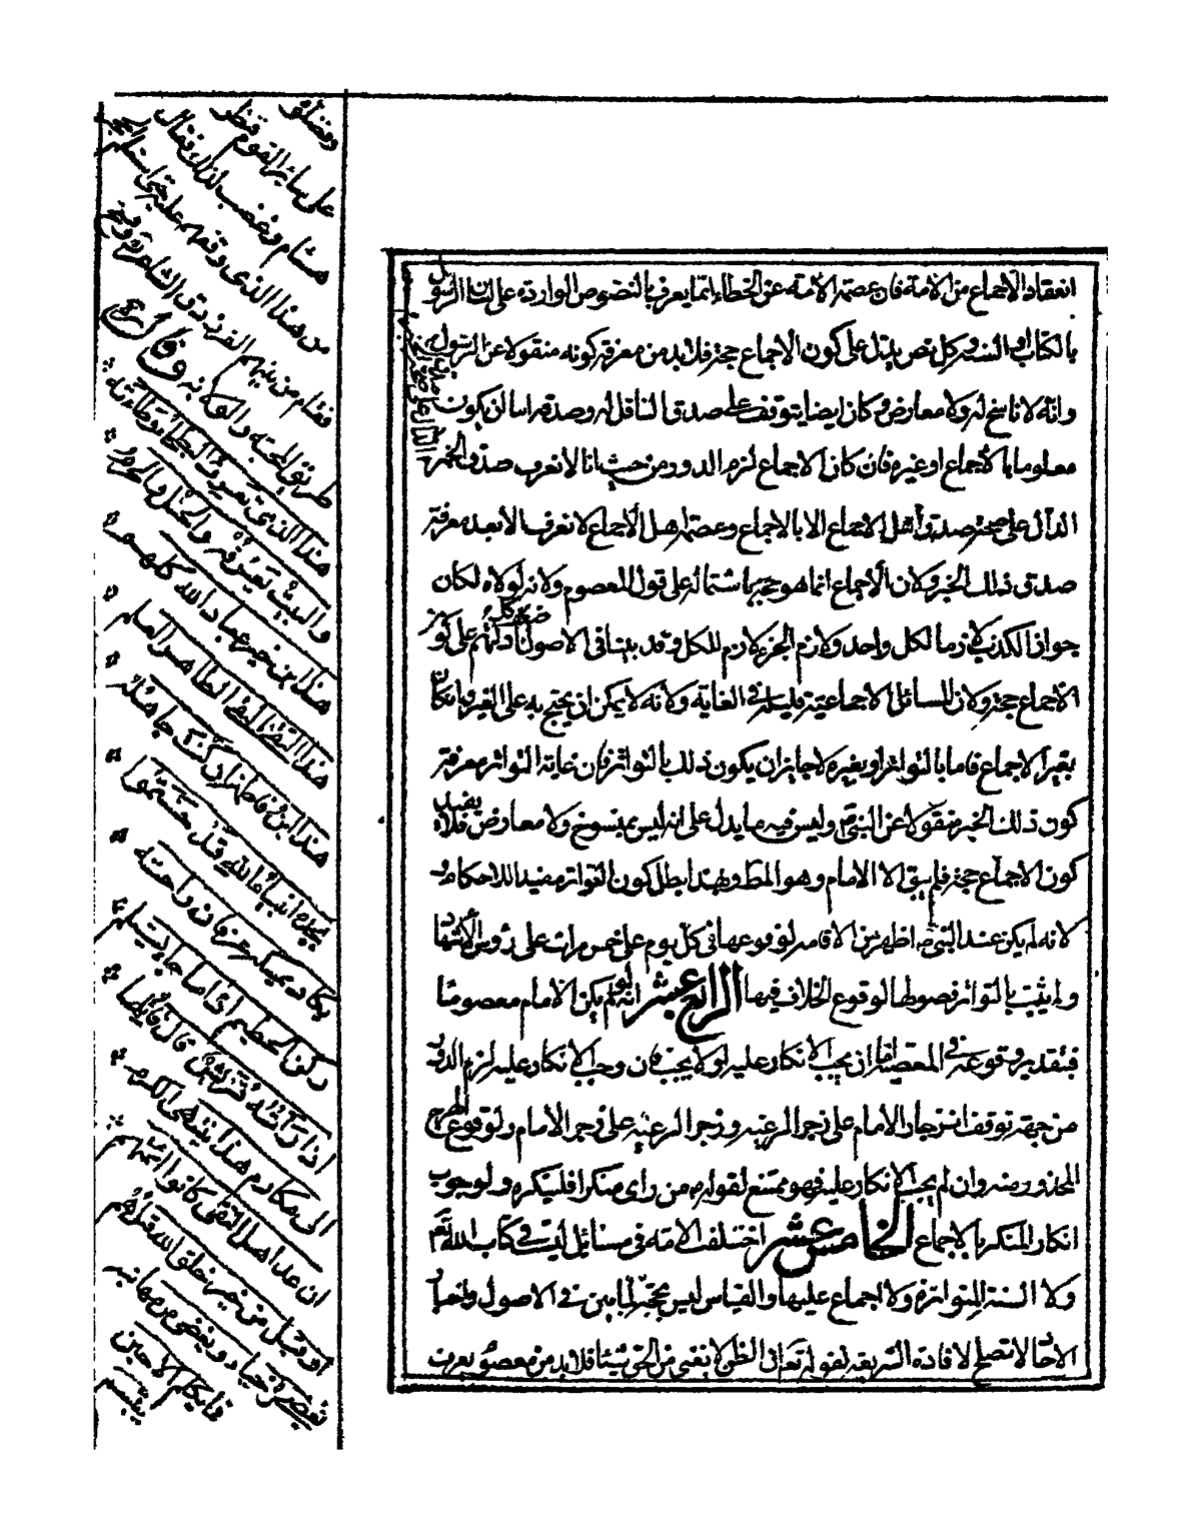 انعقاد الاجماع من الامة فان عصمة الامة عن الخطاء انما يعرف بالنصوص الواردة على لسان الرسول
بالكتاب او السنة وكل نص يدل على كون الاجماع حجة فلابد من معرفة كونه منقولا عن الرسول
وانه لا ناسخ له ولا معارض وكان ايضا يتوقف على صدق الناقل له وصدقه اما ان يكون
معلوما بالاجماع او غيره فان كان الاجماع لزم الدور من حيث انا لا نعرف صدق الخبر
الدال على صحة صدق اهل الاجماع الا بالاجماع وعصمة اهل الاجماع لا نعرف الا بعد معرفة
صدق ذلك الخبر ولان الاجماع انما هو حجة باشتماله على قول المعصوم ولانه لولاه لكان
جواز الكذب لازما لكل واحد ولازم الجزء لازم للكل وقد بينا في الاصول
الاجماع حجة ولان المسائل الاجماعية قليلة في الغاية ولانه لا يمكن ان يحتج به على الغير
بغير الاجماع فاما بالتواتر او بغيره لا جايز ان يكون ذلك بالتواتر فان غاية التواتر معرفة
كون ذلك الخبر منقولا عن النبي ص وليس فيه ما يدل على انه ليس بمنسوخ ولا معارض فلا يفيد
كون الاجماع حجة فلم يبق الا الامام وهو المط وبهذا بطل كون التواتر مفيدا للاحكام
لانه لم يكن عند النبي ص اظهر من الاقامة لوقوعها في كل يوم على خمس مرات على رؤس الاشهاد
ولم يثبت بالتواتر فصولها لوقوع الخلاف فيها الرابع عشر انه لو لم يكن الامام معصوما
فبتقدير وقوعه في المعصية اما ان يجب الانكار عليه او لا يجب فان وجب الانكار عليه لزم الدور
من جهة توقف انزجار الامام على زجر الرعية وزجر الرعية على زجر الامام ولوقوع الهرج
المحذور منه وان لم يجب الانكار عليه فهو ممتنع لقوله ص من راى منكرا فلينكره ولوجوب
انكار المنكر بالاجماع الخامس عشر اختلف الامة في مسائل ليست في كتاب الله تعم
ولا السنة المتواترة ولا اجماع عليها والقياس ليس بحجة لما بين في الاصول واخبار
الاحاد لا تصلح لافادة الشريعة لقوله تعالى ان الظن لا يغني من الحق شيئا فلابد من معصوم يعرف
وفضلو
على ساير القوم فنظر
هشام وغضب لذلك فقال
من هذا الذي
فقام من بينهم الفرزدق الشاعر
طريق المحبة وقال
هذا الذي تعرف البطحاء وطأته
والبيت يعرفه والحل والحرم
هذا ابن خير عباد الله كلهم
هذا التقي النقي الطاهر العلم
هذا ابن فاطمة ان كنت جاهله
بجده انبياء الله قد ختموا
يكاد يمسكه عرفان راحته
ركن الحطيم اذا ما جاء يستلم
اذا راته قريش قال قائلها
الى مكارم هذا ينتهي الكرم
ان عد اهل التقى كانوا ائمتهم
او قيل من خير خلق الله قيل هم
يغضي حياء ويغضى من مهابته
فلا يكلم الا حين
يبتسم